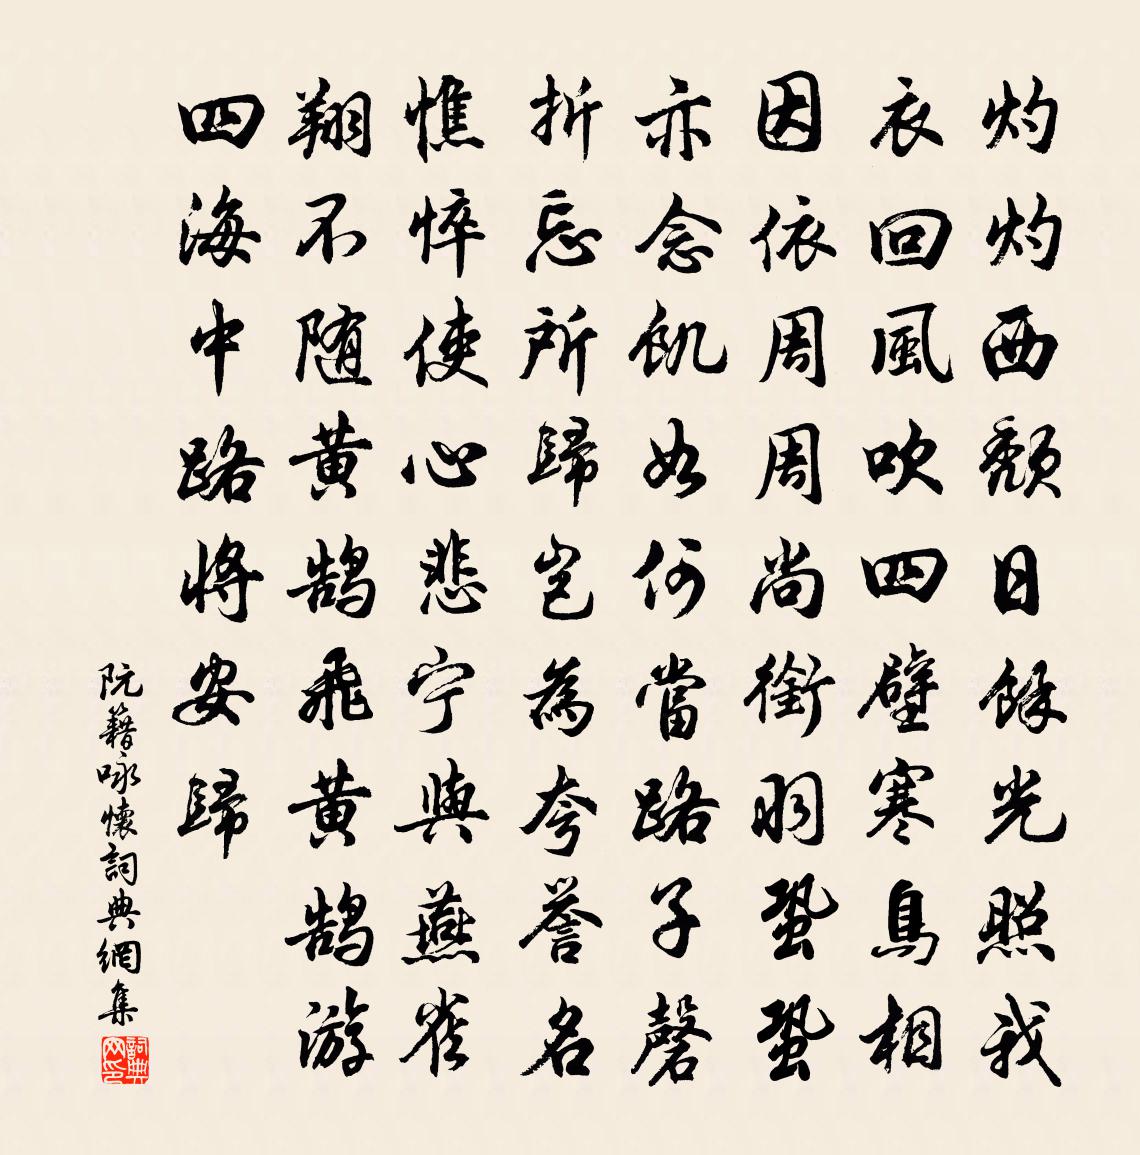 灼灼西颓日餘光照我
衣回風吹四壁寒鳥相
因依周周尚銜羽蛩蛩
亦念飢如何當路子磬
折忘所歸豈為夸譽名
憔悴使心悲宁與燕雀
翔不随黄鹄飛黄鹄游
四海中路將安歸
阮籍咏懷詞典網集
詞典网印